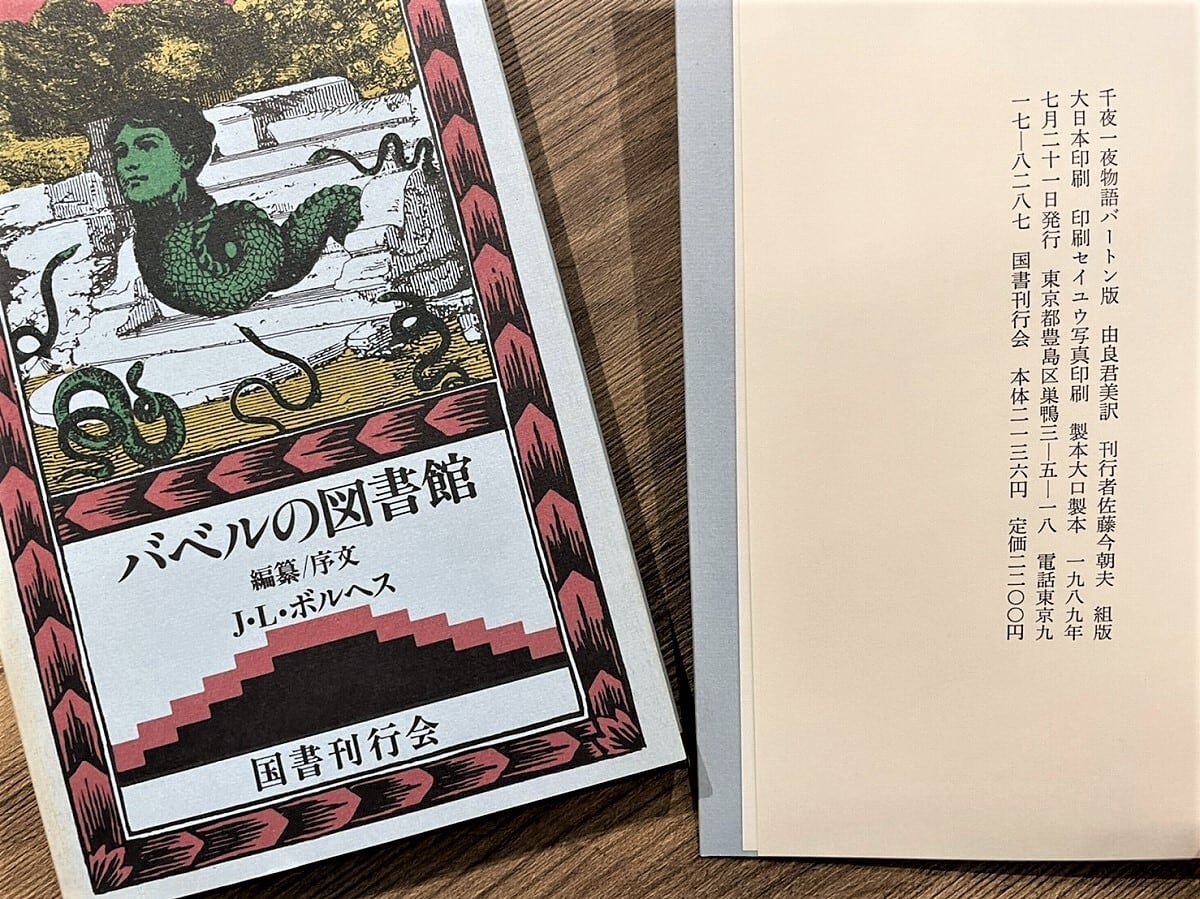 バベルの図書館
編纂/序文
J・L・ボルヘス
国書刊行会
千夜一夜物語バートン版　由良君美訳　刊行者佐藤今朝夫　組版
大日本印刷　印刷セイユウ写真印刷　製本大口製本　一九八九年
七月二十一日発行　東京都豊島区巣鴨三―五―一八　電話東京九
一七―八二八七　国書刊行会　本体二一三六円　定価二二〇〇円